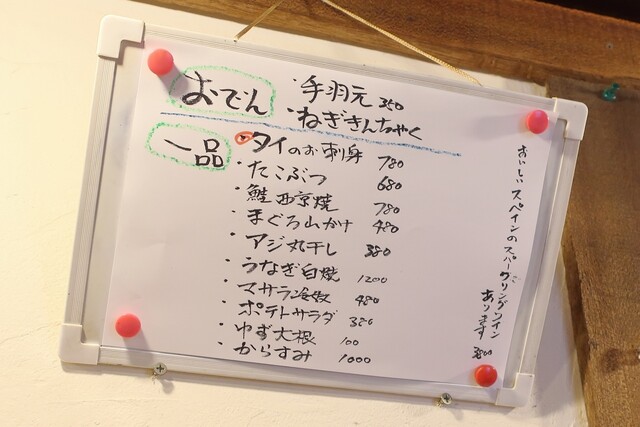 おでん
・手羽元 350
・ねぎきんちゃく
一品
・タイのお刺身 780
・たこぶつ 680
・鮭西京焼 780
・まぐろ山かけ 480
・アジ丸干し 380
・うなぎ白焼 1200
・マサラ冷奴 480
・ポテトサラダ 380
・ゆず大根 100
・からすみ 1000
おいしいスペインのスパークリングワイン
あります 3800